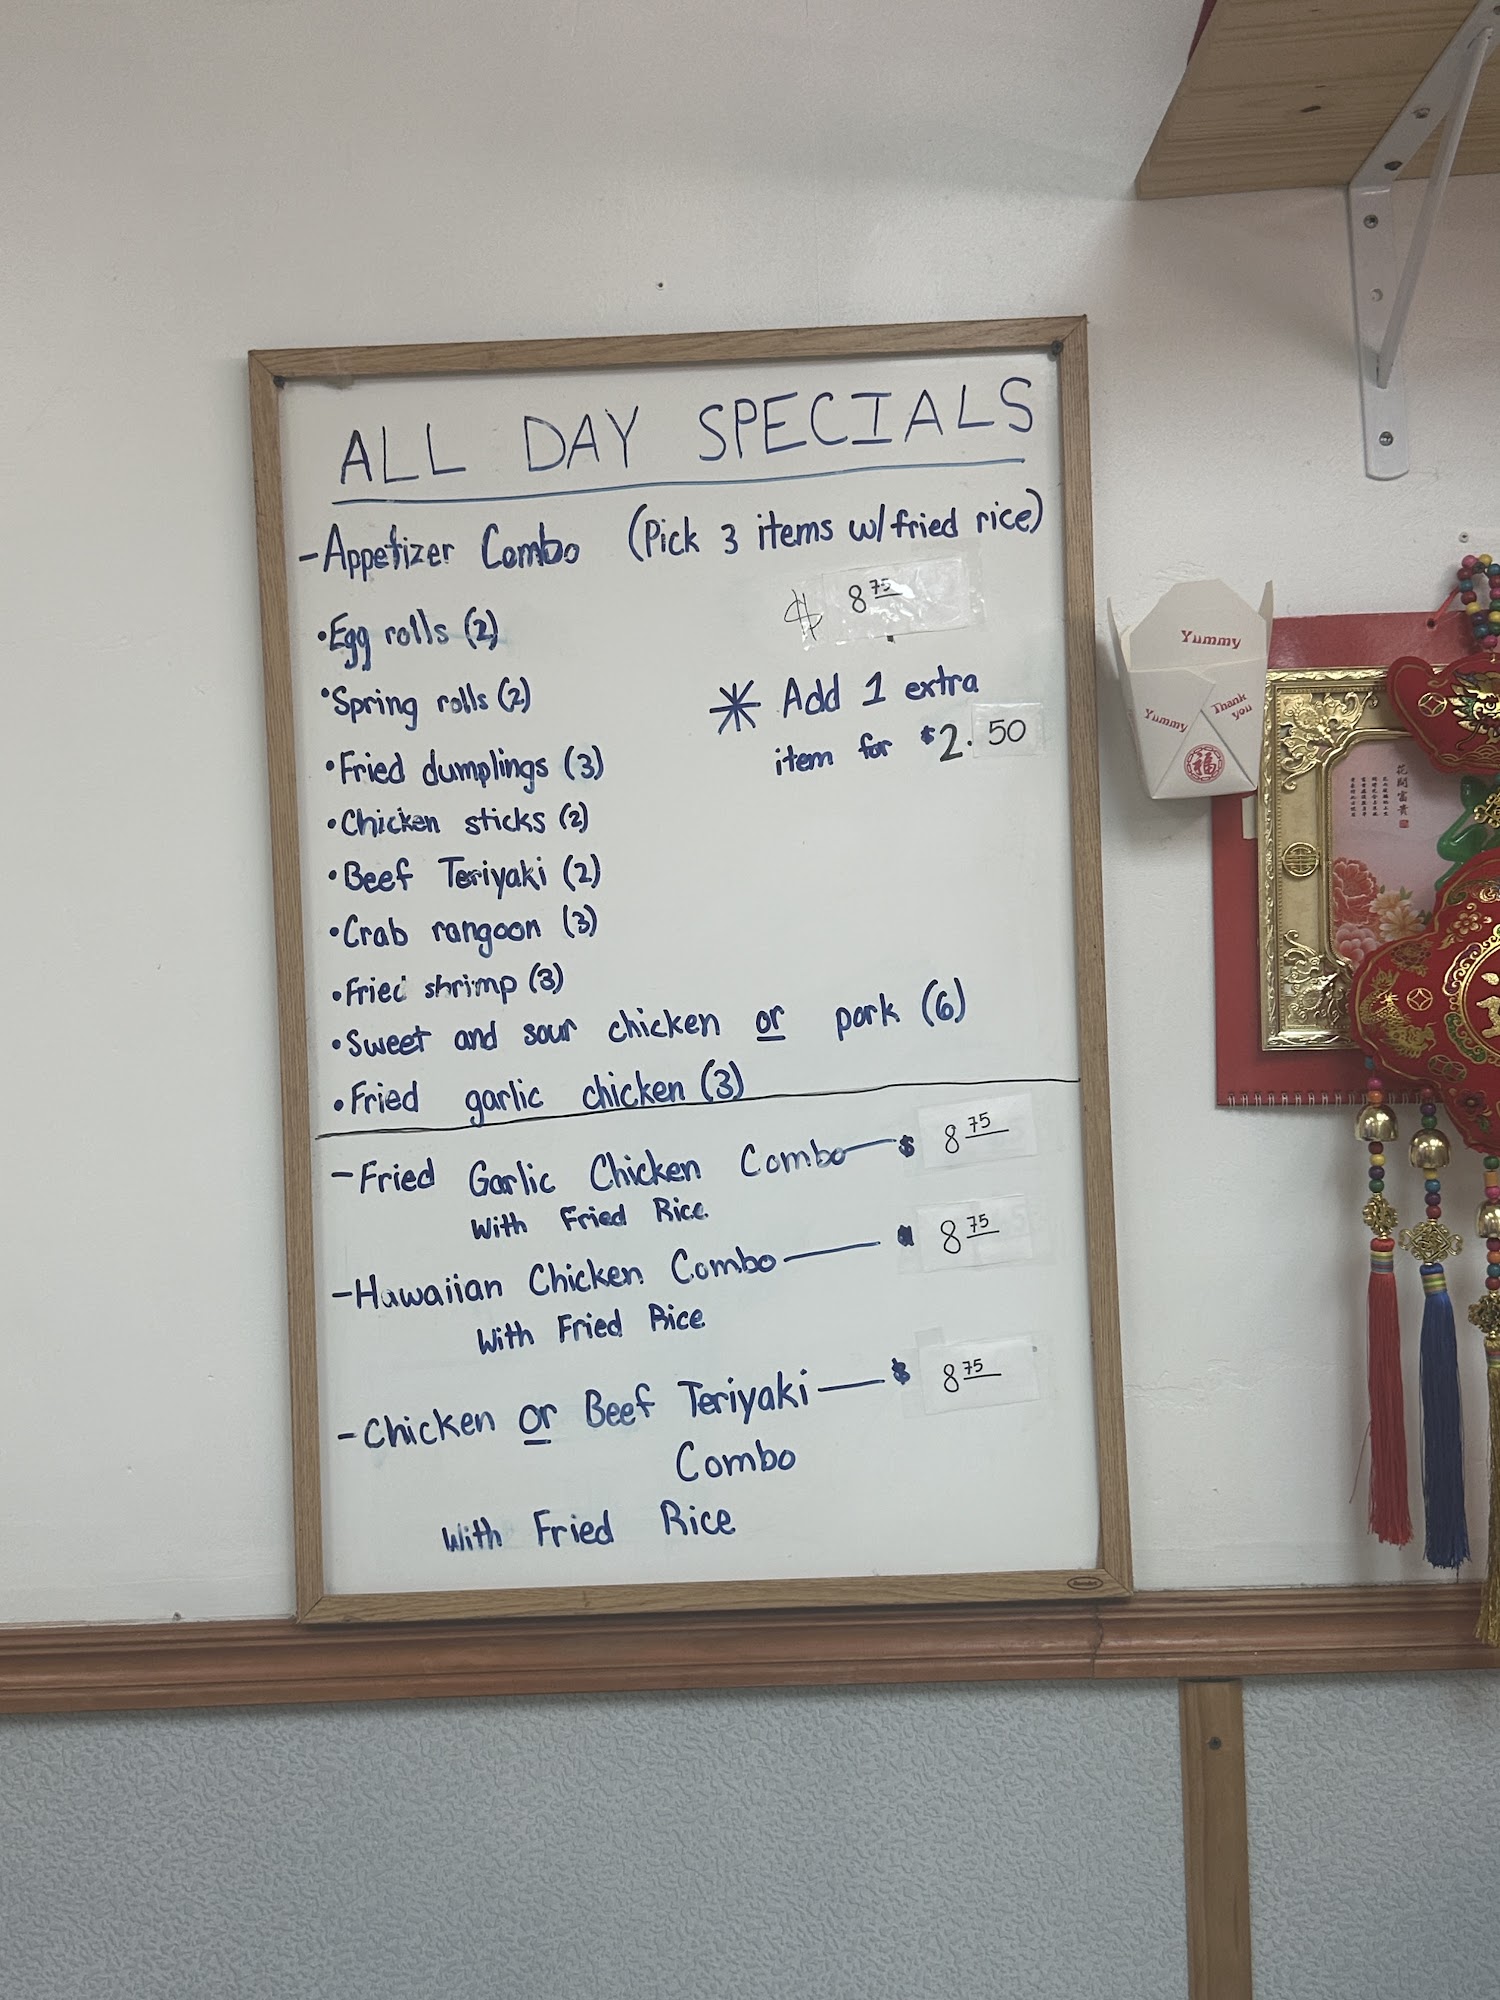 ALL DAY SPECIALS
- Appetizer Combo (Pick 3 items w/ fried rice)
$ 8 75
• Egg rolls (2)
• Spring rolls (2)
* Add 1 extra
item for $2.50
• Fried dumplings (3)
• Chicken sticks (2)
• Beef Teriyaki (2)
• Crab rangoon (3)
• Fried shrimp (3)
• Sweet and sour chicken or pork (6)
• Fried garlic chicken (3)
- Fried Garlic Chicken Combo — $ 8 75
With Fried Rice
- Hawaiian Chicken Combo — 8 75
With Fried Rice
- Chicken or Beef Teriyaki — $ 8 75
Combo
With Fried Rice
Yummy
Yummy
Thank
you
福
花開富貴